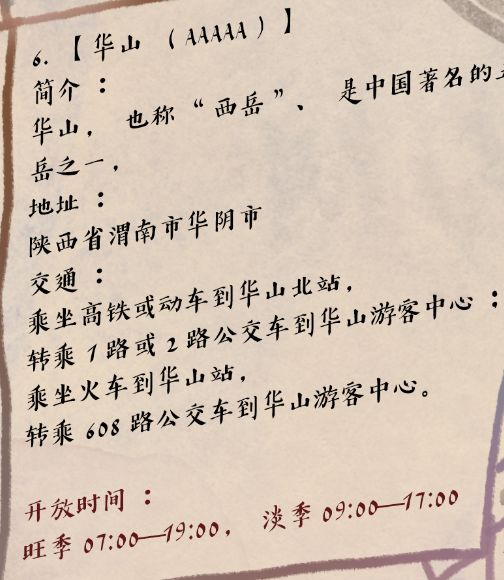 6. 【 华山 （AAAAA）】
简介：
华山， 也称“西岳”、 是中国著名的
岳之一，
地址：
陕西省渭南市华阴市
交通：
乘坐高铁或动车到华山北站，
转乘 1 路或 2 路公交车到华山游客中心；
乘坐火车到华山站，
转乘 608 路公交车到华山游客中心。
开放时间：
旺季 07:00—19:00， 淡季 09:00—17:00